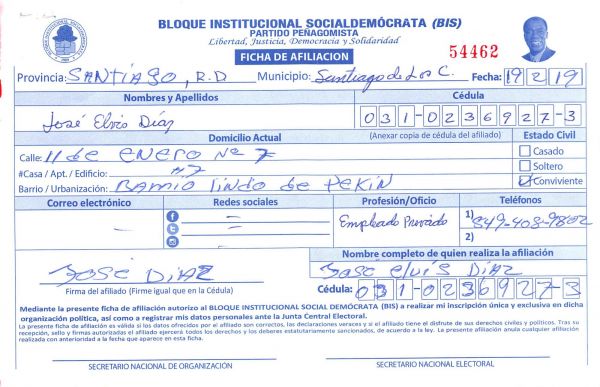 BLOQUE INSTITUCIONAL SOCIALDEMÓCRATA (BIS)
PARTIDO PEÑAGOMISTA
Libertad, Justicia, Democracia y Solidaridad
FICHA DE AFILIACION
54462
Provincia: SANTIAGO, R.D Municipio: Santiago de Los C. Fecha: 19 2 19
Nombres y Apellidos Cédula
José Elvis Díaz 031-0236927-3
Domicilio Actual (Anexar copia de cédula del afiliado) Estado Civil
Calle: 11 de ENERO Nº 7 Casado
#Casa / Apt. / Edificio: #7 Soltero
Barrio / Urbanización: Barrio lindo de Pekin Conviviente
Correo electrónico Redes sociales Profesión/Oficio Teléfonos
— — Empleado Privado 1) 849-408-9802
— 2)
—
Nombre completo de quien realiza la afiliación
JOSÉ DIAZ José elvis DIAZ
Firma del afiliado (Firme igual que en la Cédula) Cédula: 031-0236927-3
Mediante la presente ficha de afiliación autorizo al BLOQUE INSTITUCIONAL SOCIAL DEMÓCRATA (BIS) a realizar mi inscripción única y exclusiva en dicha
organización política, así como a registrar mis datos personales ante la Junta Central Electoral.
La presente ficha de afiliación es válida si los datos ofrecidos por el afiliado son correctos, las declaraciones veraces y si el afiliado tiene el disfrute de sus derechos civiles y políticos. Tras su
recepción, sello y firmas autorizadas el afiliado ejercerá todos los derechos y los deberes estatutariamente sancionados, de acuerdo a la ley. La presente afiliación anula cualquier afiliación
realizada con anterioridad a la fecha que aparece en esta ficha.
SECRETARIO NACIONAL DE ORGANIZACIÓN SECRETARIO NACIONAL ELECTORAL